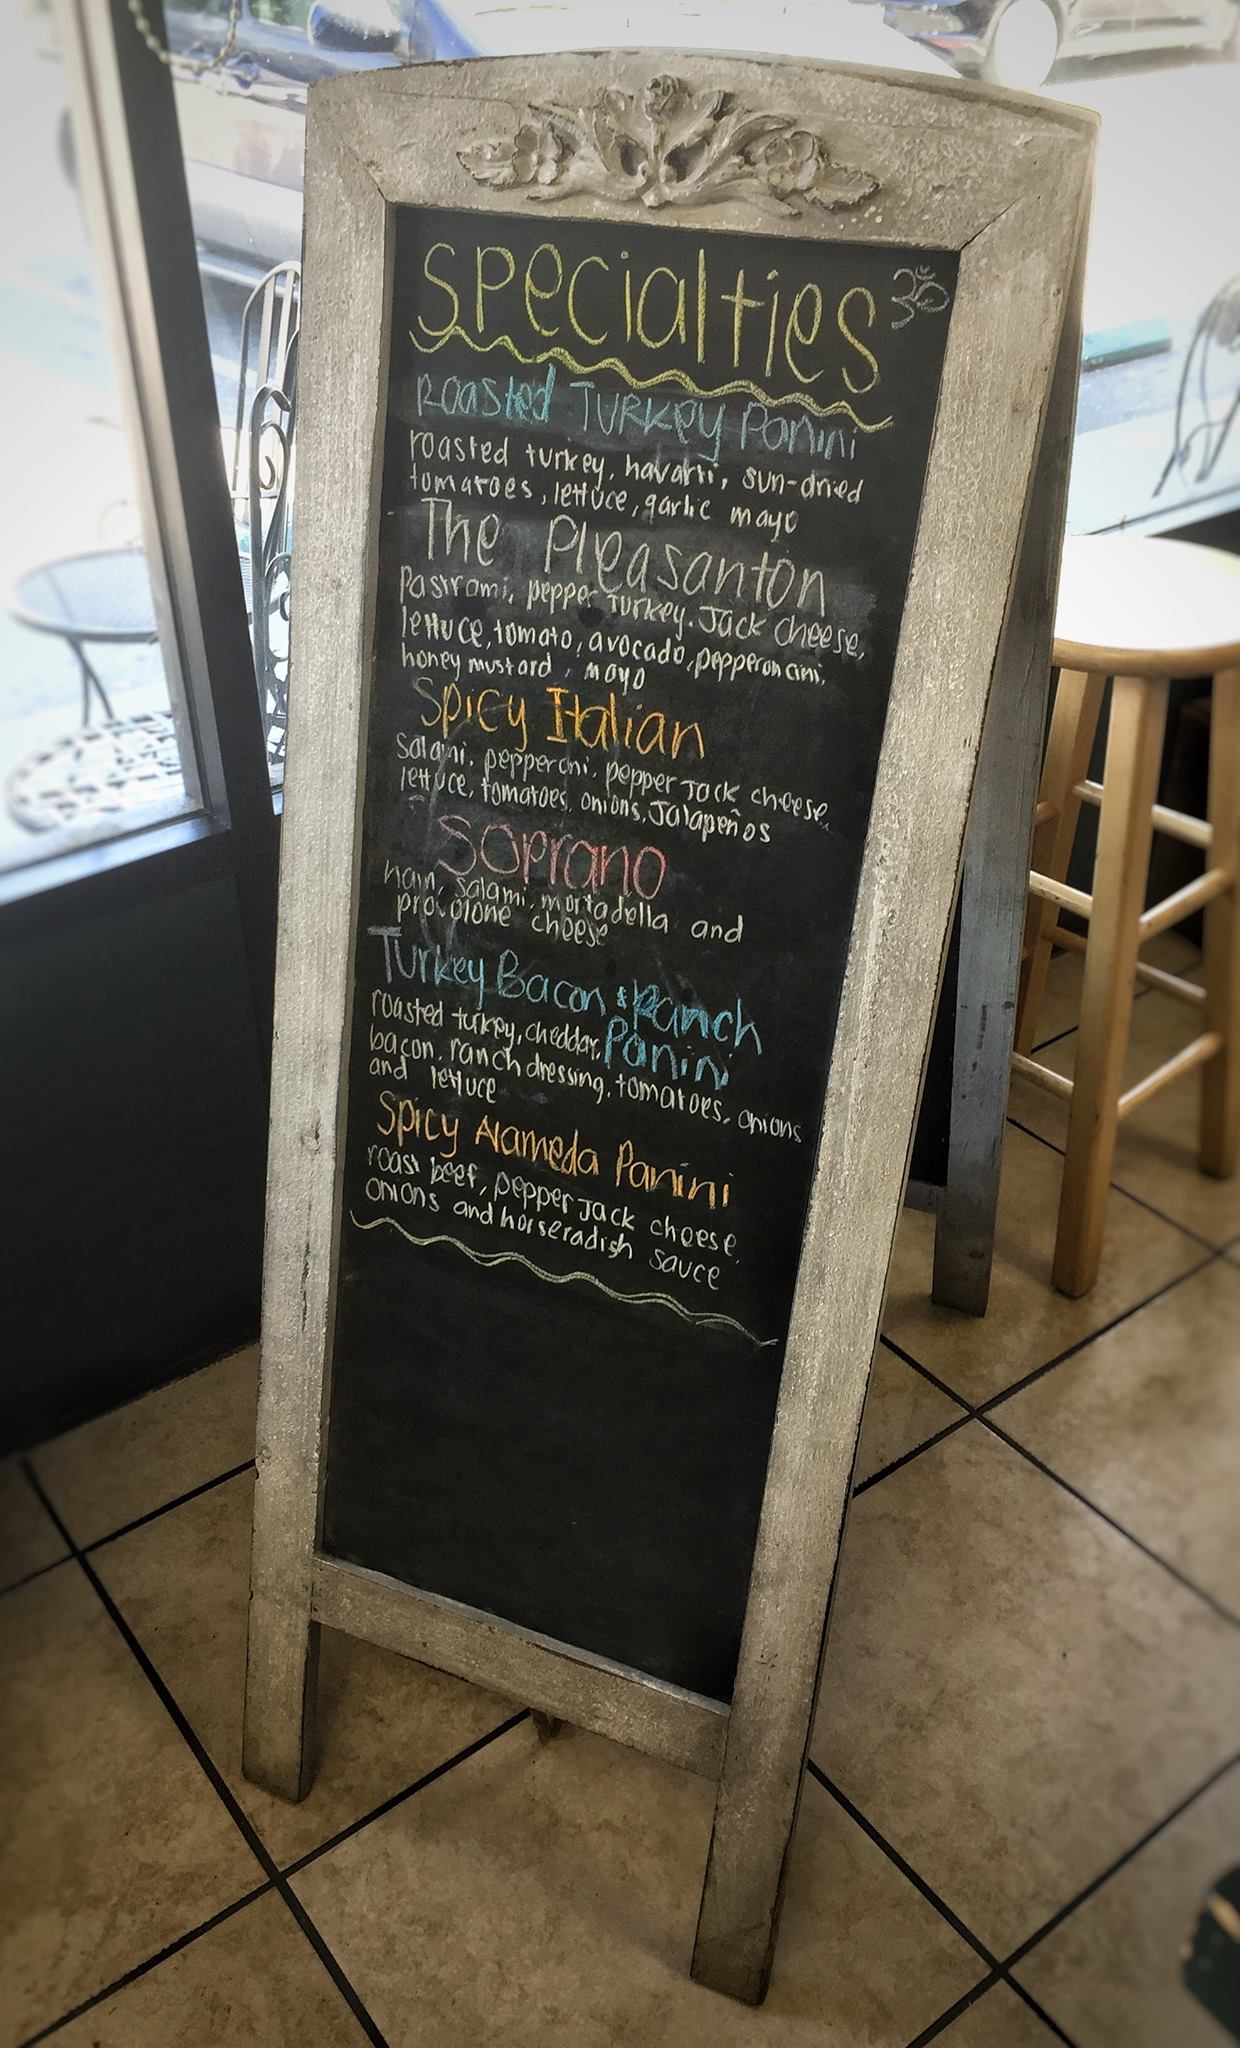 Specialties ॐ
Roasted Turkey Panini
roasted turkey, havarti, sun-dried
tomatoes, lettuce, garlic mayo
The Pleasanton
Pastrami, pepper turkey, Jack cheese,
lettuce, tomato, avocado, pepperoncini,
honey mustard, mayo
Spicy Italian
Salami, pepperoni, pepper Jack cheese,
lettuce, tomatoes, onions, Jalapeños
Soprano
ham, salami, mortadella and
provolone cheese
Turkey Bacon & Ranch
Panini
roasted turkey, cheddar,
bacon, ranch dressing, tomatoes, onions
and lettuce
Spicy Alameda Panini
roast beef, pepper Jack cheese,
onions and horseradish sauce